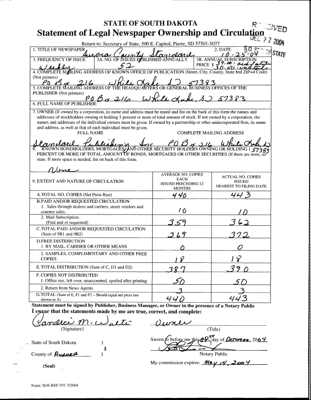 STATE OF SOUTH DAKOTA
Statement of Legal Newspaper Ownership and Circulation
Return to: Secretary of State, 500 E. Capitol, Pierre, SD 57501-5077
1. TITLE OF NEWSPAPER
Aurora County Standard
2. DATE
10-25-04
3. FREQUENCY OF ISSUE
Weekly
3A. NO. OF ISSUES PUBLISHED ANNUALLY
52
3B. ANNUAL SUBSCRIPTION
PRICE $
4. COMPLETE MAILING ADDRESS OF KNOWN OFFICE OF PUBLICATION (Street, City, County, State and ZIP+4 Code)
(Not printers)
PO Box 216 White Lake SD 57383
5. COMPLETE MAILING ADDRESS OF THE HEADQUARTERS OR GENERAL BUSINESS OFFICES OF THE
PUBLISHER (Not printer)
PO Box 216 White Lake, SD 57383
6. FULL NAME OF PUBLISHER
7. OWNER (If owned by a corporation, its name and address must be stated and list on the back of this form the names and
addresses of stockholders owning or holding 1 percent or more of total amount of stock. If not owned by a corporation, the
names and addresses of the individual owners must be given. If owned by a partnership or other unincorporated firm, its name
and address, as well as that of each individual must be given.
FULL NAME COMPLETE MAILING ADDRESS
Standard Publishing Inc PO Box 216 White Lake SD
57383
8. KNOWN BONDHOLDERS, MORTGAGES AND OTHER SECURITY HOLDERS OWNING OR HOLDING 1
PERCENT OR MORE OF TOTAL AMOUNT OF BONDS, MORTGAGES OR OTHER SECURITIES (If there are none, so
state. If more space is needed, list on back of this form.
None
9. EXTENT AND NATURE OF CIRCULATION
AVERAGE NO. COPIES
EACH
ISSUED PRECEDING 12
MONTHS
ACTUAL NO. COPIES
ISSUED
NEAREST TO FILING DATE
A. TOTAL NO. COPIES (Net Press Run) 440 443
B. PAID AND/OR REQUESTED CIRCULATION
1. Sales through dealers and carriers, street vendors and
counter sales. 10 10
2. Mail Subscription
(Paid and or requested) 359 362
C. TOTAL PAID AND/OR REQUESTED CIRCULATION
(Sum of 9B1 and 9B2) 369 372
D. FREE DISTRIBUTION
1. BY MAIL, CARRIER OR OTHER MEANS 0 0
2. SAMPLES, COMPLIMENTARY AND OTHER FREE
COPIES 18 18
E. TOTAL DISTRIBUTION (Sum of C, D1 and D2) 387 390
F. COPIES NOT DISTRIBUTED
1. Office use, left over, unaccounted, spoiled after printing 50 50
2. Return from News Agents 3 3
G. TOTAL (Sum of E, F1 and F2 – Should equal net press run
shown in A) 440 443
Statement must be signed by Publisher, Business Manager, or Owner in the presence of a Notary Public
I swear that the statements made by me are true, correct, and complete:
Owner
(Signature) (Title)
State of South Dakota )
)
County of Aurora )
(Seal)
Sworn to before me this day of October 2004
Notary Public
My commission expires: